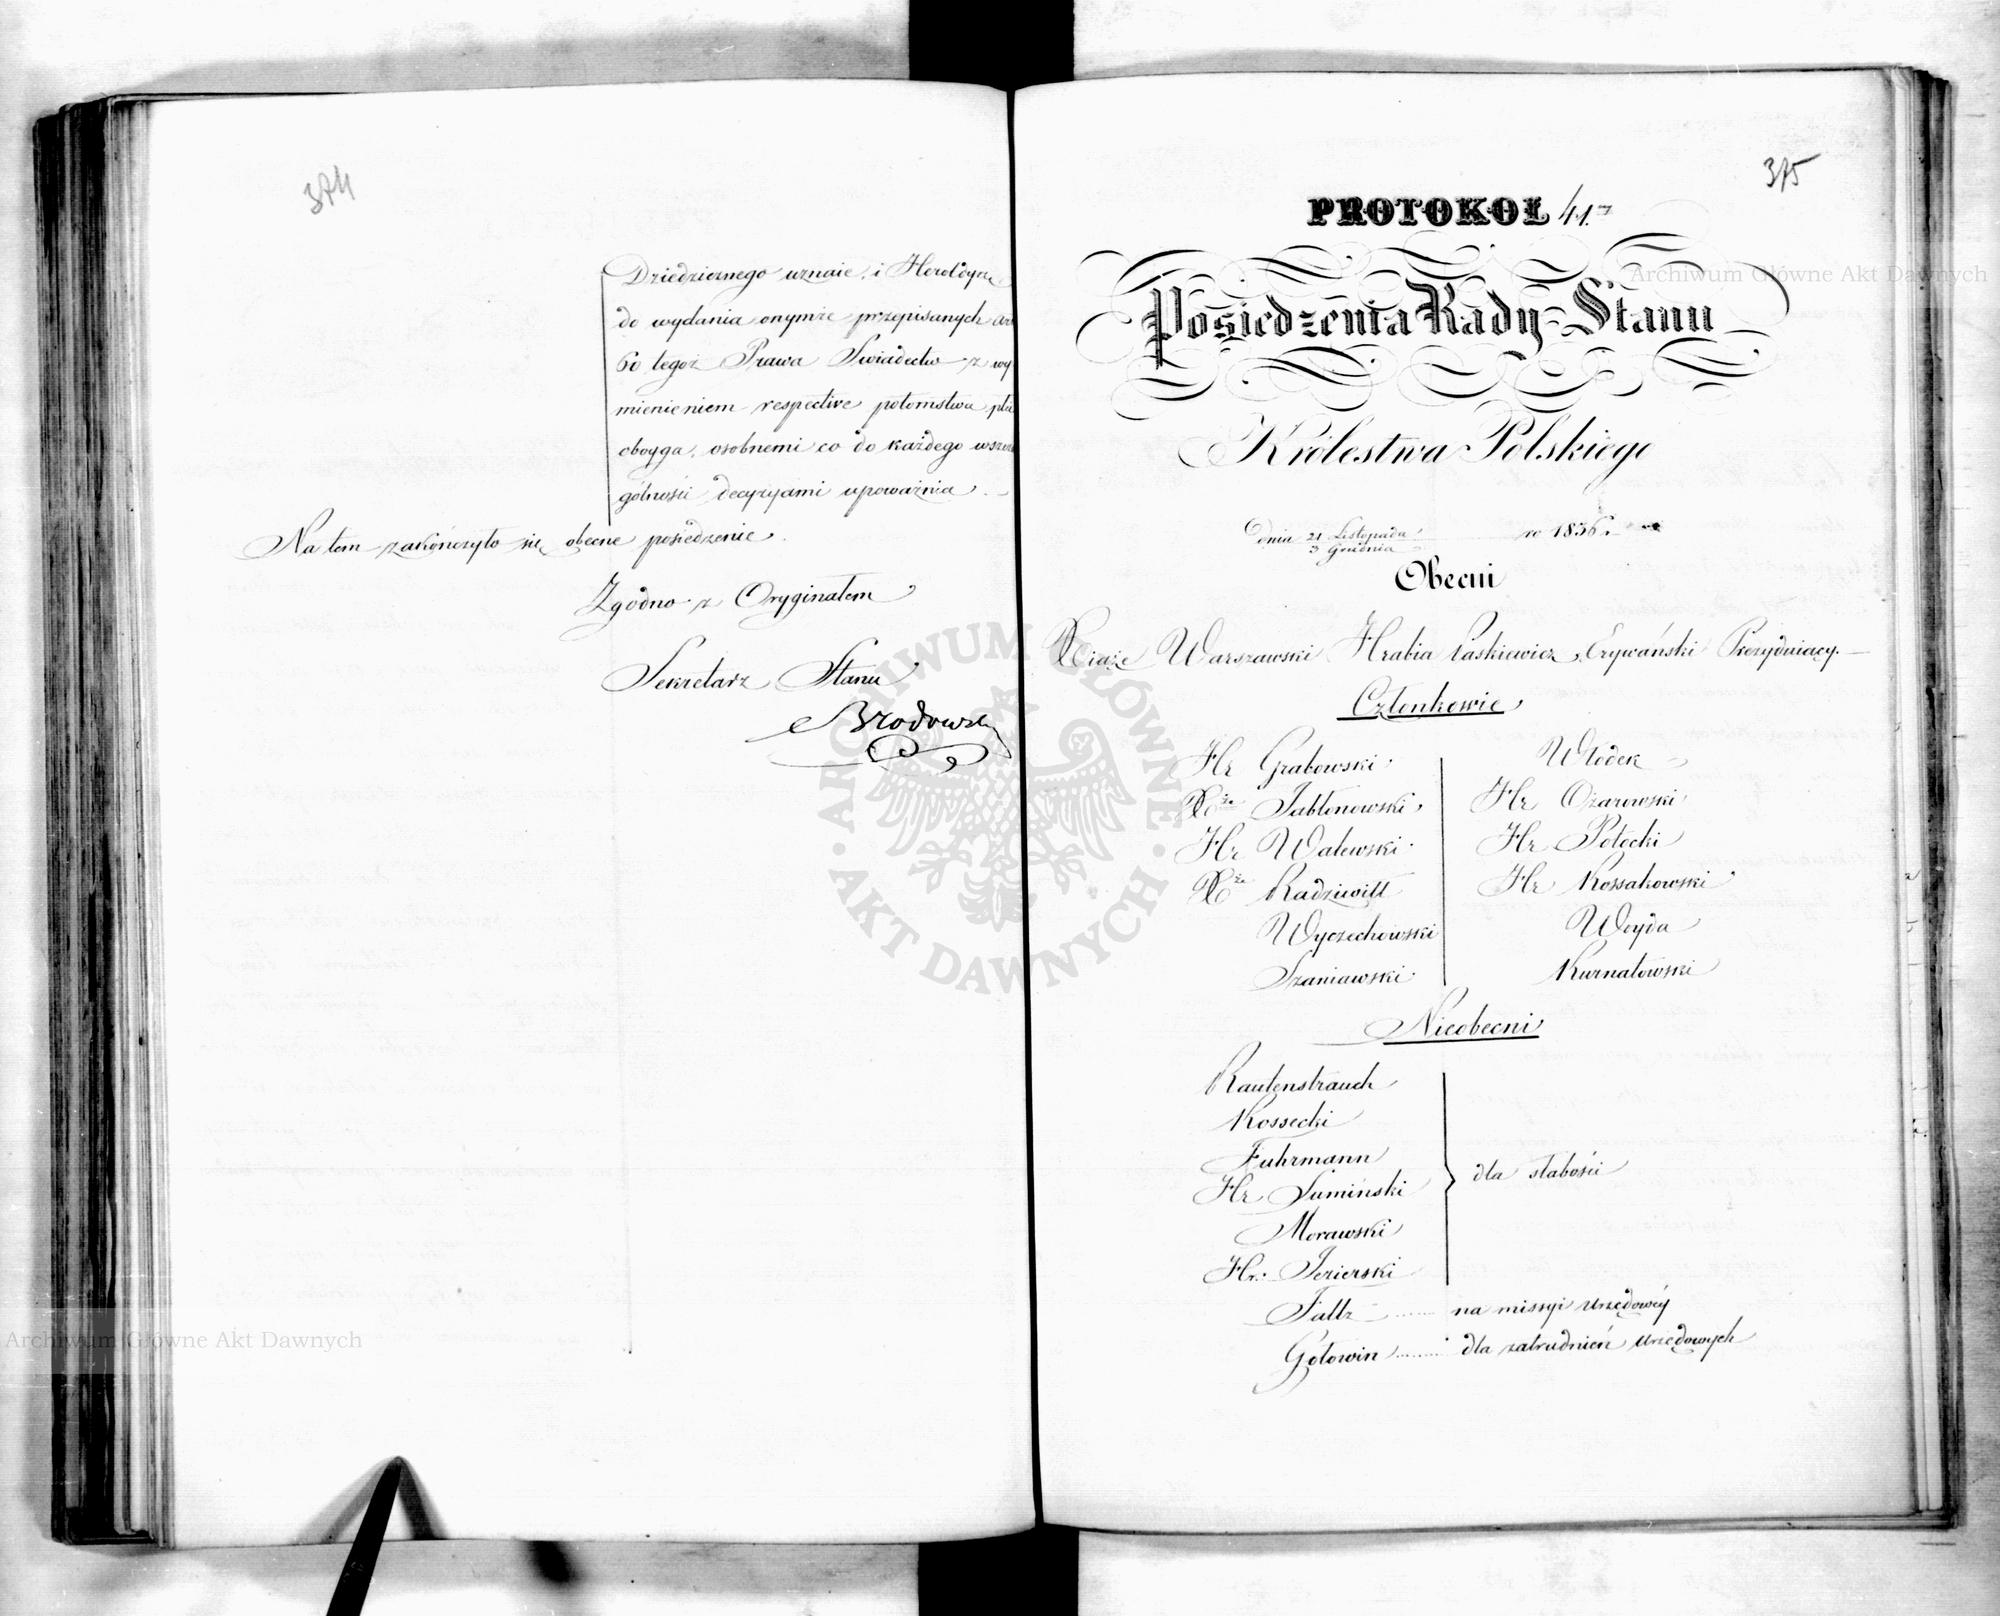 374
Dziedzicznego uznaie, i Heroldyą
do wydania onymże przepisanych Art
60 tegoż Prawa Swiadectw z wy
mienieniem respective potomstwa płci
oboyga, osobnemi co do każdego wszcze
gólności decyzyami upoważnia.
Na tem zakończyło się obecne posiedzenie.
Zgodno z Oryginałem
Sekretarz Stanu
Brodowski
375
PROTOKOŁ 41.
Posiedzenia Rady Stanu
Królestwa Polskiego
dnia 21 Listopada
3 Grudnia
ro 1836.
Obecni
Xiąże Warszawski Hrabia Paskiewicz Erywański Prezyduiący.
Członkowie
Hr Grabowski
Xże Jabłonowski
Hr Walewski
Xże Radziwiłł
Wyczechowski
Szaniawski
Włodek
Hr Ożarowski
Hr Potocki
Hr Kossakowski
Woyda
Kurnatowski
Nieobecni
Rautenstrauch
Kossecki
Fuhrmann
Hr Sumiński
Morawski
Hr. Jezierski
dla słabości
Faltz ...... na missyi urzędowéy
Gołowin ...... dla zatrudnień urzędowych
Archiwum Główne Akt Dawnych
Archiwum Główne Akt Dawnych
ARCHIWUM GŁÓWNE · AKT DAWNYCH ·